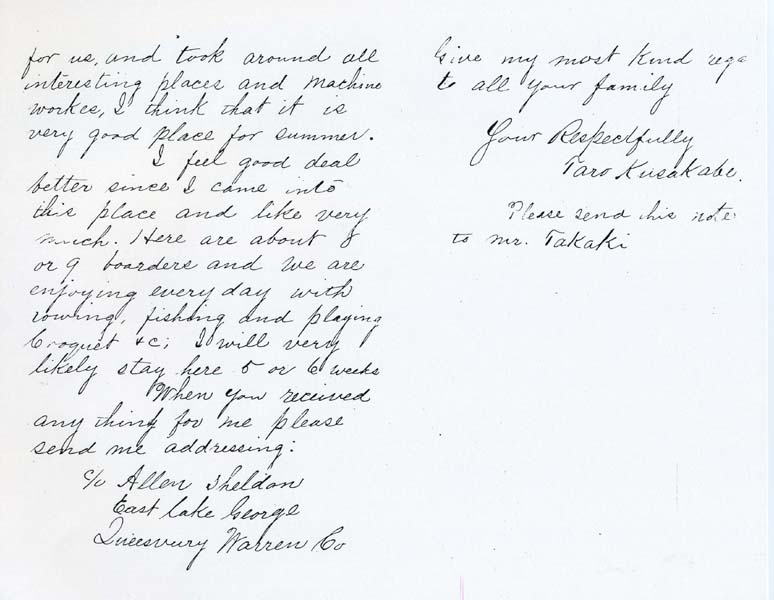 for us, and took around all
interesting places and machine
workes, I think that it is
very good place for summer.
I feel good deal
better since I came into
this place and like very
much. Here are about 8
or 9 boarders and we are
enjoying every day with
rowing, fishing and playing
Croquet &c; I will very
likely stay here 5 or 6 weeks
When you received
any thing for me please
send me addressing:
c/o Allen Sheldon
East Lake George
Queesvury Warren Co
Give my most kind rega
to all your family
Your Respectfully
Taro Kusakabe.
Please send this note
to mr. Takaki